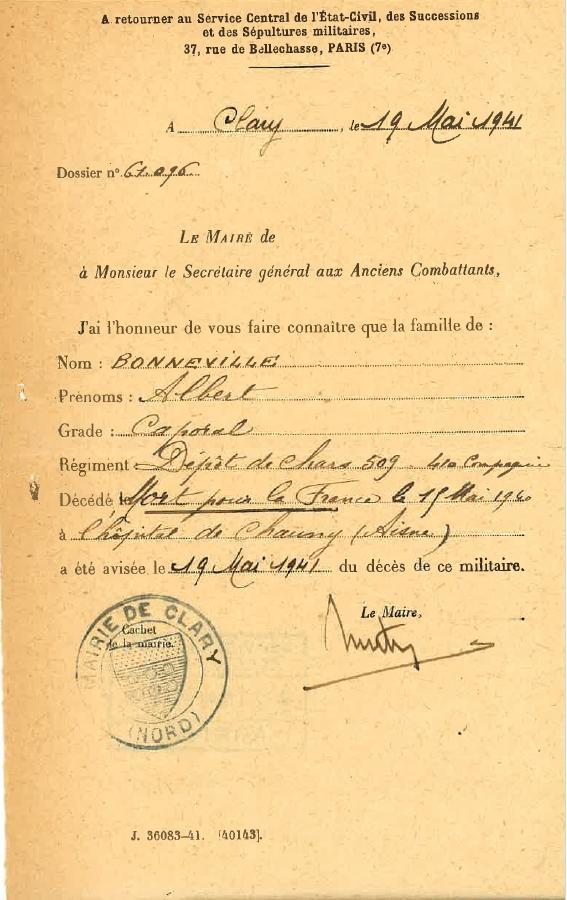 A retourner au Service Central de l'État-Civil, des Successions
et des Sépultures militaires,
37, rue de Bellechasse, PARIS (7e)
A Clary, le 19 Mai 1941
Dossier n° 61.096
LE MAIRE de
à Monsieur le Secrétaire général aux Anciens Combattants,
J'ai l'honneur de vous faire connaître que la famille de :
Nom : BONNEVILLE
Prénoms : Albert
Grade : Caporal
Régiment : Dépôt de chars 509 - 410 Compagnie
Décédé le Mort pour la France le 15 Mai 1940
à l'hôpital de Chauny (Aisne)
a été avisée le 19 Mai 1941 du décès de ce militaire.
Le Maire,
MAIRIE DE CLARY
Cachet
de la mairie.
(NORD)
J. 36083-41. [40143].